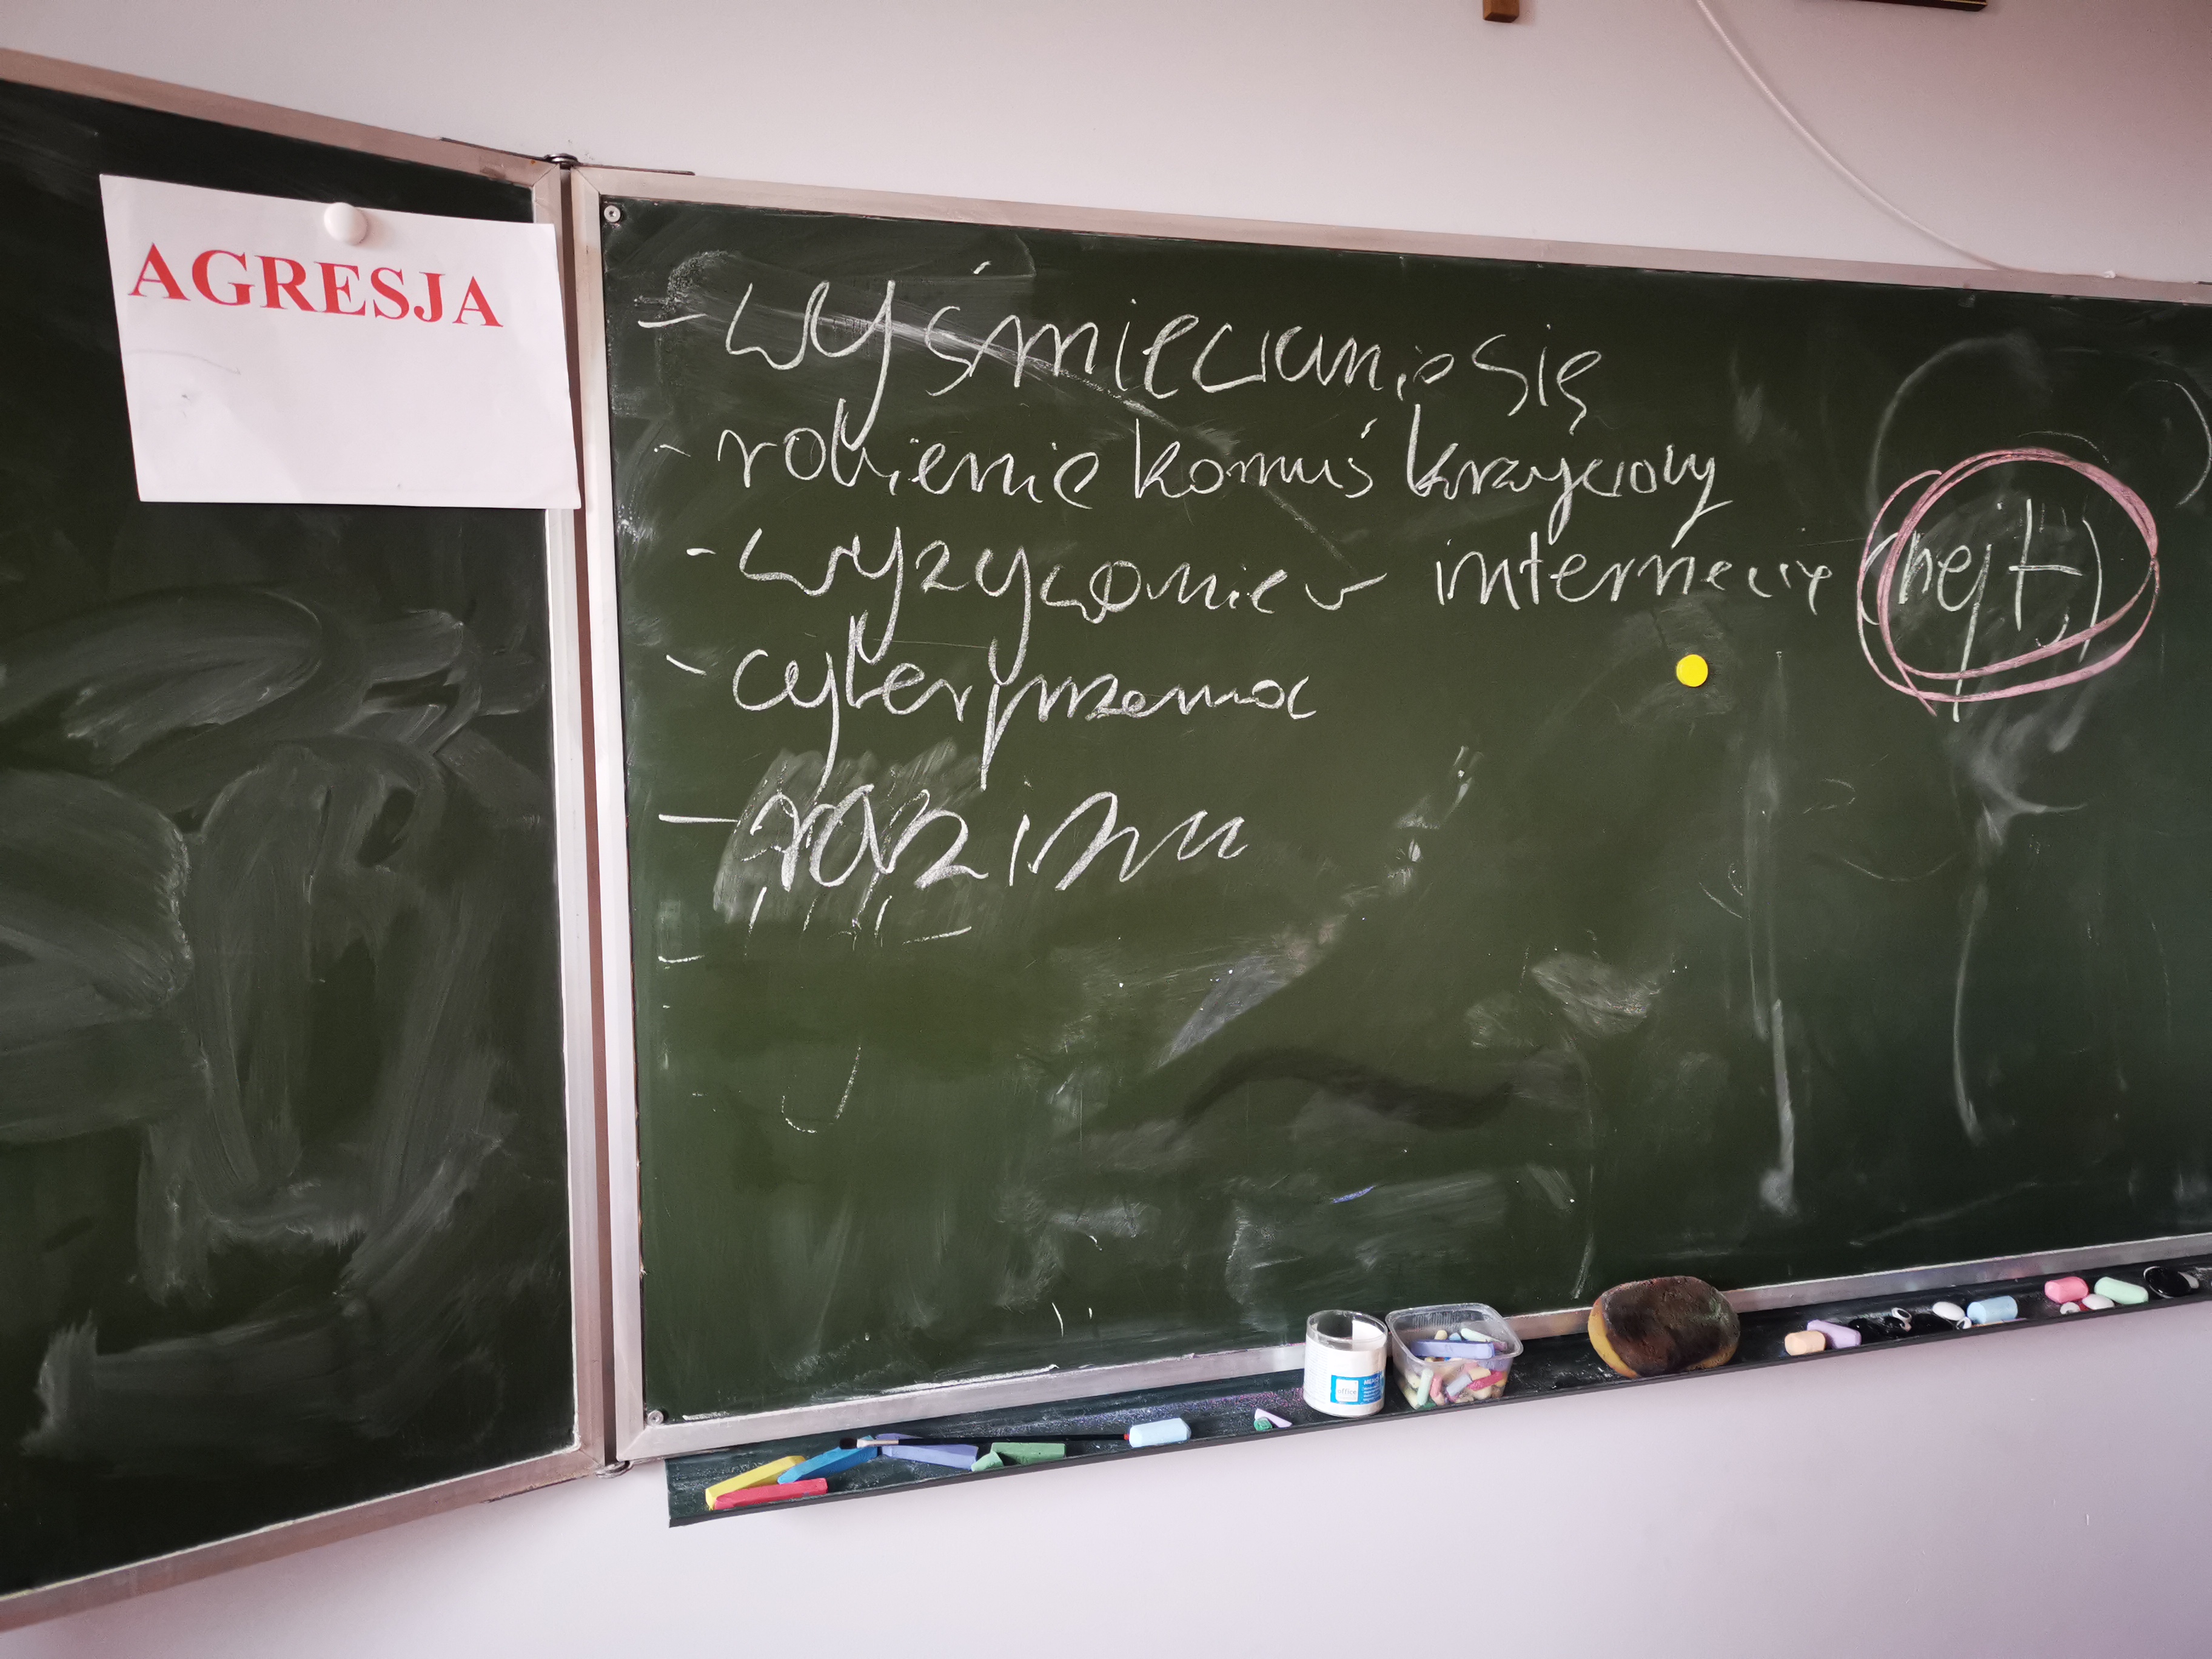 AGRESJA
- wyśmiecianie się
- robienie komuś krzywdy
- wyzywanie w internecie (hejt)
- cyberprzemoc
- rasizm
office